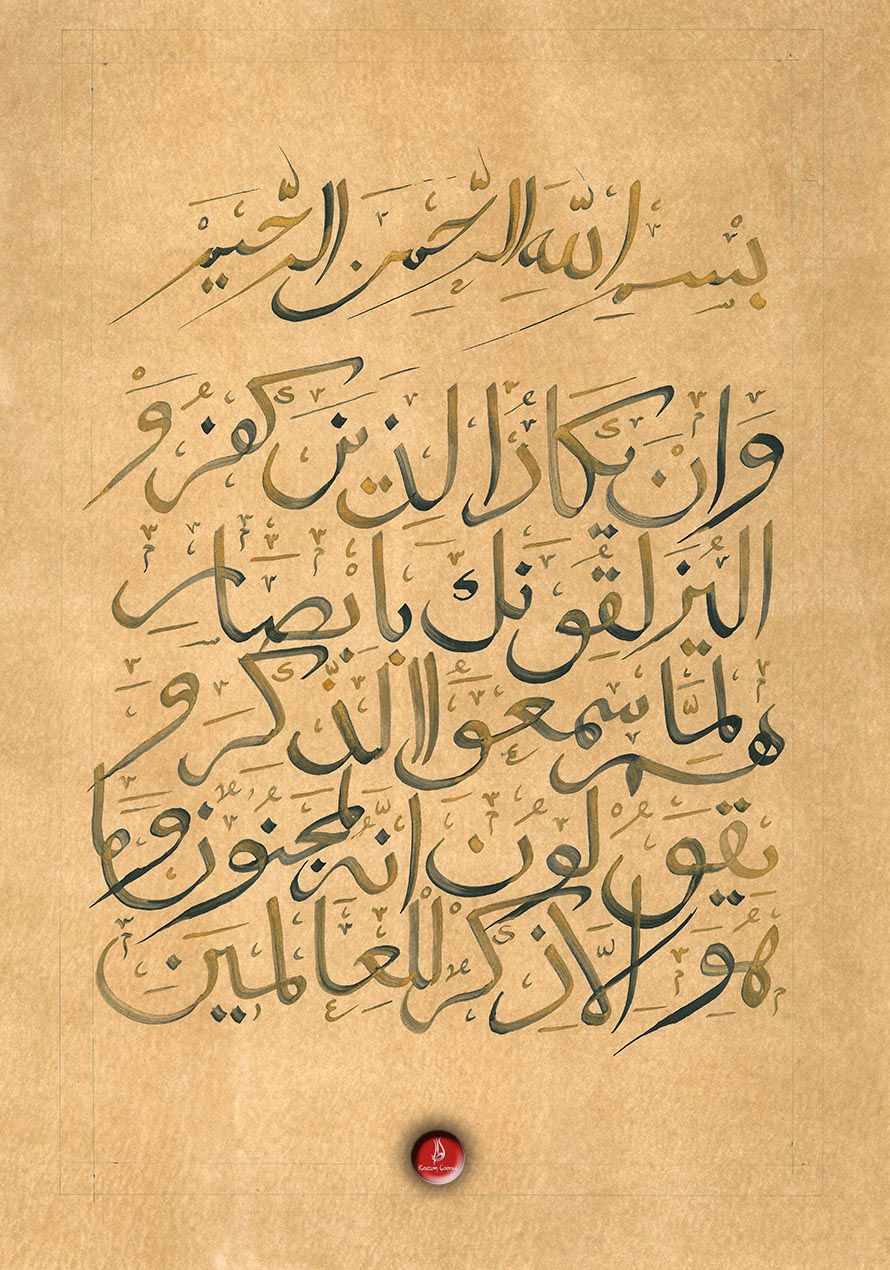 بِسْمِ اللّٰهِ الرَّحْمٰنِ الرَّحِيْمِ
وَاِنْ يَكَادُ الَّذِيْنَ كَفَرُوْ
الَيُزْلِقُوْنَكَ بِاَبْصَارِ
هِمْ لَمَّا سَمِعُوا الذِّكْرَ وَ
يَقُوْلُوْنَ اِنَّهُ لَمَجْنُوْنٌ وَمَا
هُوَ اِلَّا ذِكْرٌ لِلْعَالَمِيْنَ